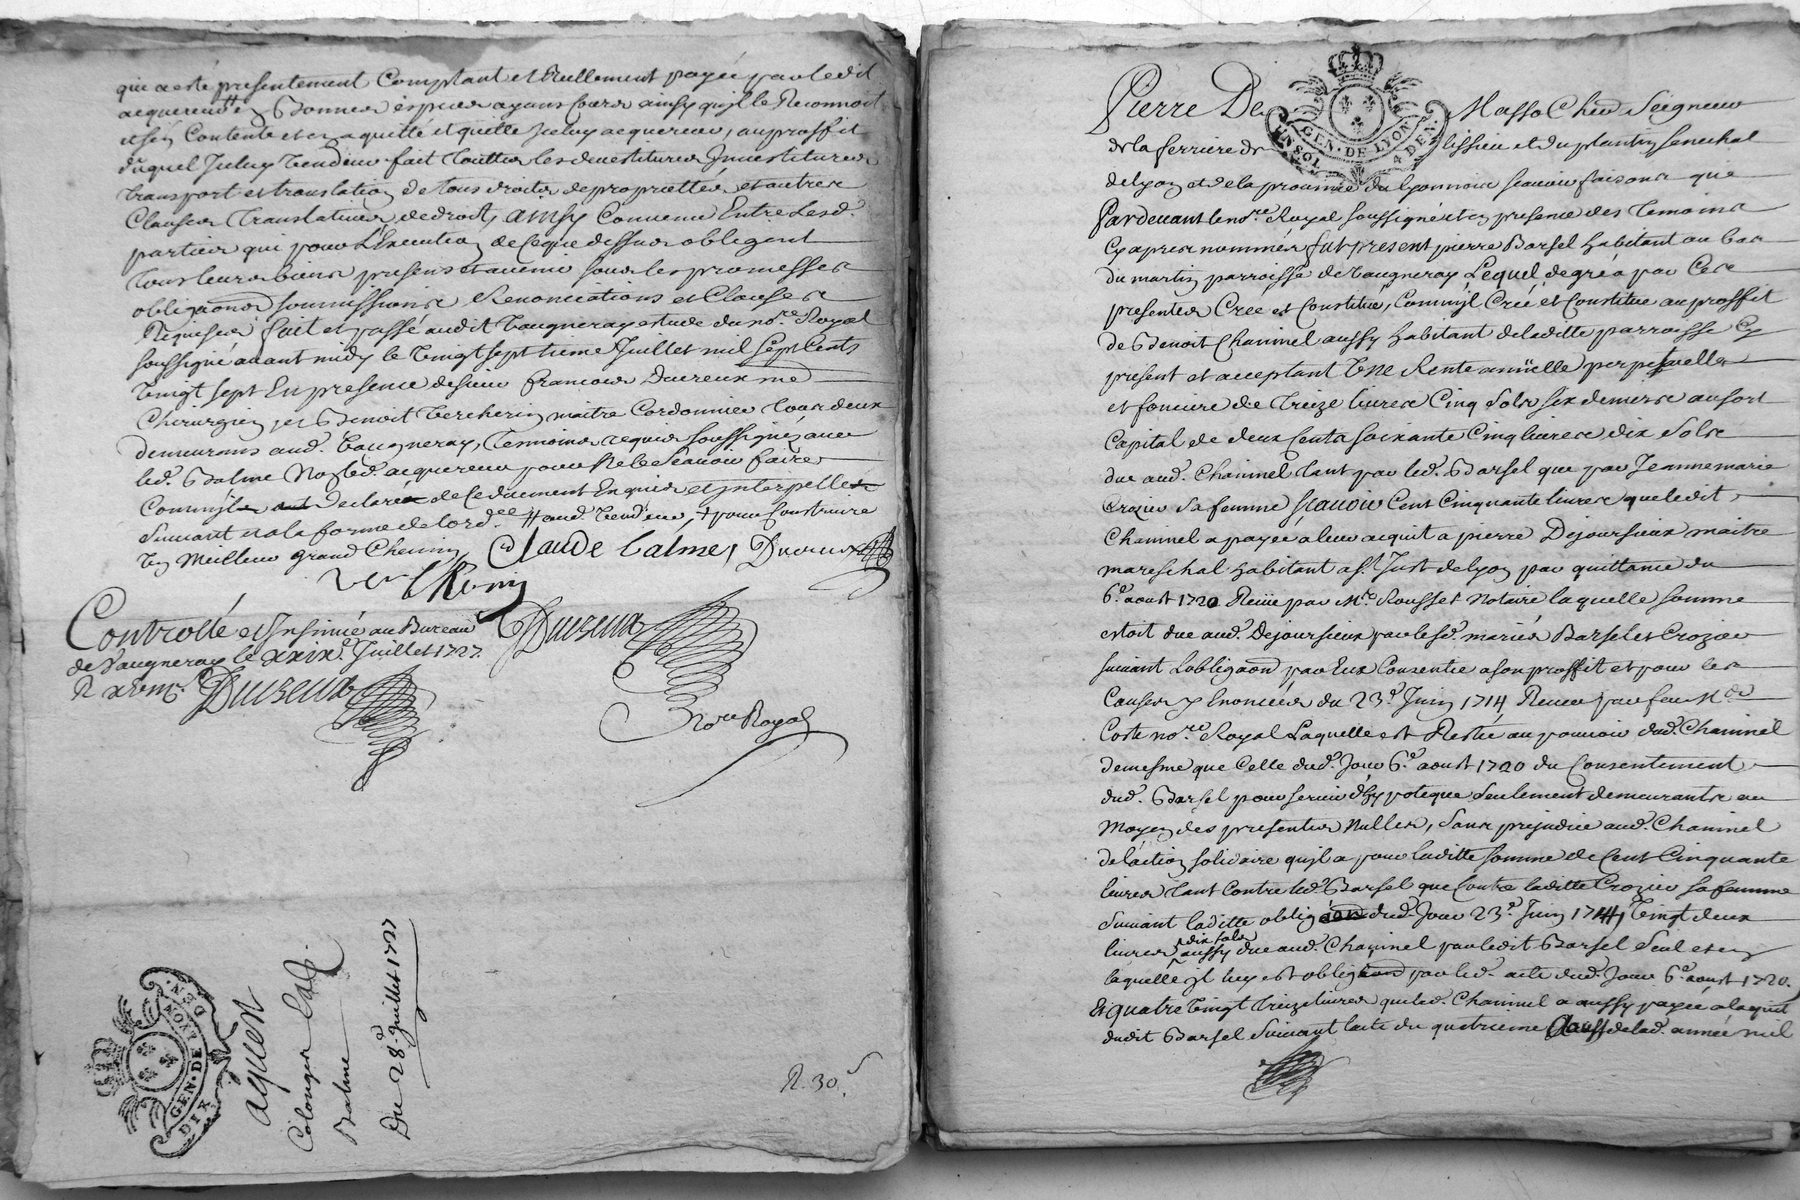 qui a esté presentement Comptant et Reellement payée par ledit
acquereur En Bonnes especes ayans Cours ainsy qu'il le Reconnoit
Contente et en a quitté et quitte Iceluy acquereur, au proffit
duquel Iceluy Vendeur fait touttes les devestitures Investitures
transport et translation de tous droits de proprietté et autres
Clauses translatives de droit, ainsy Convenu Entre Lesd.
parties qui pour L'Execution de Ce que dessus obligent
tous leurs biens presens et avenir sous les promesses
obligaons soumissions Renonciations et Clauses
Requises fait et passé audit Vaugneray estude du no.re Royal
soussigné avant midy le Vingt sept.ieme Juillet mil sept Cents
Vingt sept En presence de sieur francois Ducreux me
Chirurgien, et Benoit Vercherin maitre Cordonnier tous deux
demeurans aud. Vaugneray, temoins requis soussignés avec
led. Balme Non led. acquereur pour Ne le Scavoir faire
Comm'il declaré de Ce duement Enquis et interpellé
Suivant et a la forme de lord.ce # aud. Vendeur, + pour Construire
Un Meilleur grand Chemin Claude balme, Ducreux
Vercherin
Controllé et Insinué au Bureau Ducreux
de Vaugneray le xxix.e Juillet 1727.
R Ducreux
No.re Royal
GEN. DE LYON
DIX DEN.
aquest
Colonges Cad.
Balme
Du 28.e Juillet 1727
R. 30.s
Pierre De Masso Cher Seigneur
de la ferriere de lissieu et du plantin senechal
de lyon et de la province du lyonnois scavoir faisons que
UN SOL GEN. DE LYON 4 DEN.
Pardevant le no.re Royal soussigné et en presence des temoins
Cy apres nommés fut present pierre Barsel habitant au bas
du martin parroisse de Vaugneray, Lequel de gré a par Ces
presentes Creé et Constitué, Comm'il Creé et Constitue au proffit
de Benoit Chaninel aussy habitant de laditte parroisse Cy
present et acceptant Une Rente annüelle perpetuelle
et fonciere de treize livres Cinq Sols six deniers au sort
Capital de deux Cents soixante Cinq livres dix Sols
due aud. Chaninel tant par led. Barsel que par Jeanne marie
Crozier Sa femme scavoir Cent Cinquante livres que ledit
Chaninel a payée a leur acquit a pierre Dejoursieux maitre
mareschal habitant a S.t Just de lyon par quittance du
6.e aoust 1720 Recüe par M.e Rousset Notaire laquelle somme
estoit due aud. Dejoursieux par lesd. mariés Barsel et Crozier
suivant Lobligaon par Eux Consentie a son proffit et pour les
Causes y Enoncées du 23.e Juin 1714 Recue par feu M.e
Coste no.re Royal Laquelle est Restée au pouvoir dud. Chaninel
demesme que Celle dud. Jour 6.e aoust 1720 du Consentement
dud. Barsel pour servir d'hypoteque seulement demeurants au
Moyen des presentes Nulles, sans prejudice aud. Chaninel
de l'action solidaire qu'il a pour laditte somme de Cent Cinquante
livres tant Contre led. Barsel que Contre laditte Crozier sa femme
Suivant laditte obligaon dud. Jour 23.e Juin 1714, Vingt deux
livres dix sols aussy due aud. Chaninel par ledit Barsel Seul et en
laquelle il luy est obligé par led. acte dud. Jour 6.e aoust 1720,
Et quatre Vingt treize livres que led. Chaninel a aussy payée a laquit
dudit Barsel Suivant lacte du quatrieme aoust de lad. année mil